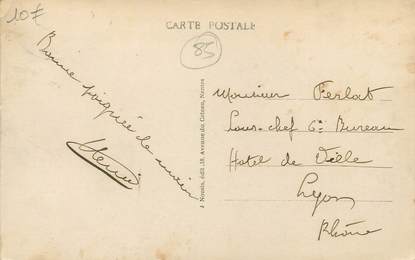 10F
CARTE POSTALE
85
Bonne poignée de main
Henri
J. Nozais, édit., 18, Avenue du Coteau, Nantes
Monsieur Ferlat
Sous-chef 6e Bureau
Hotel de Ville
Lyon
Rhône